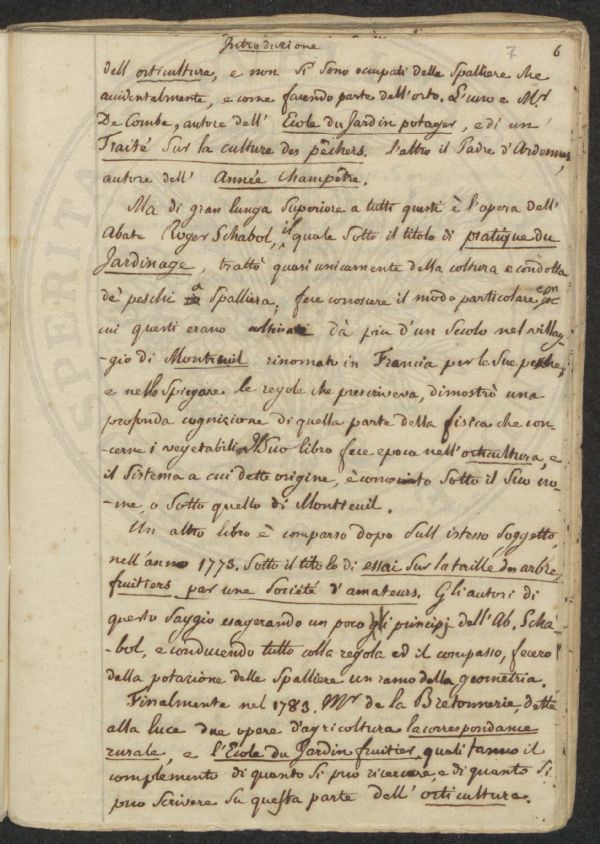 Introduzione
7 6
dell'orticultura, e non si sono occupati delle Spalliere che
accidentalmente, e come facendo parte dell'orto. L'uno e Mr
De Combe, autore dell' Ecole du Jardin potager, e di un
Traité sur la culture des pêchers. l'altro il Padre d'Ardennes,
autore dell' Année champêtre.
Ma di gran lunga Superiore a tutti questi è l'opera dell'
Abate Roger Schabol, il quale Sotto il titolo di pratique du
Jardinage, trattò quasi unicamente della coltura e condotta
de' peschi a Spalliera; fece conoscere il modo particolare, con
cui questi erano da più d'un Secolo nel villag-
-gio di Montreuil rinomato in Francia per le Sue pesche,
e nello Spiegare le regole che prescriveva, dimostrò una
profonda cognizione di quella parte della fisica che con-
-cerne i vegetabili. Il Suo libro fece epoca nell'orticultura, e
il Sistema a cui dette origine, è conosciuto Sotto il Suo no-
-me, o Sotto quello di Montreuil.
Un altro libro è comparso dopo Sull' istesso Soggetto
nell'anno 1773. Sotto il titolo di essai Sur la taille des arbres
fruitiers par une Societé d'amateurs. Gli autori di
questo Saggio esagerando un poco gli principj dell'Ab. Scha-
-bol, e conducendo tutto colla regola ed il compasso, fecero
della potazione delle Spalliere un ramo della geometria.
Finalmente nel 1783. Mr de la Bretonnerie dette
alla luce due opere d'agricoltura la correspondance
rurale, e l'Ecole du Jardin fruitier, quali fanno il
complemento di quanto Si può ricercare, e di quanto Si
può Scrivere Su questa parte dell' orticultura.